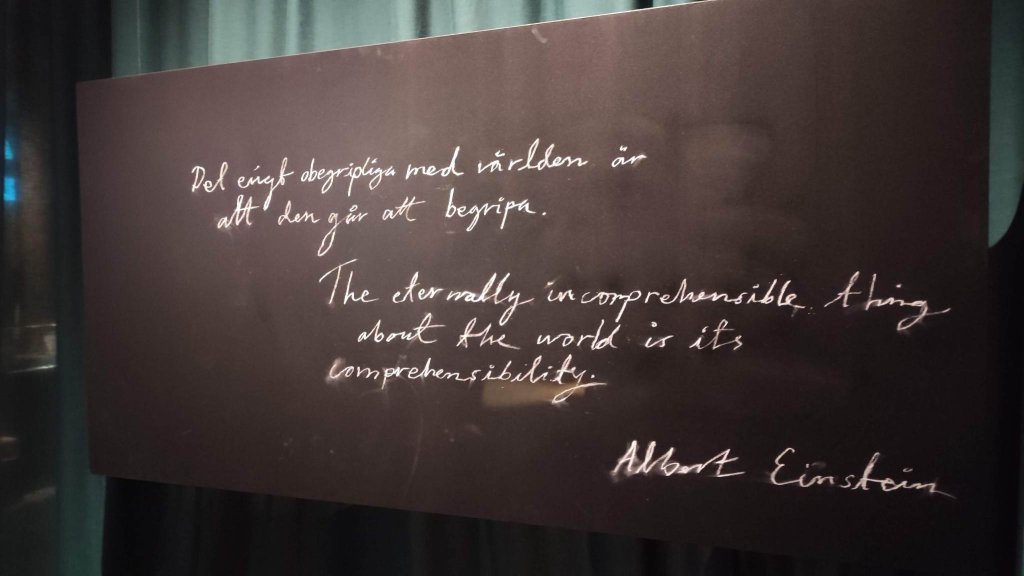 Det evigt obegripliga med världen är
att den går att begripa.
The eternally incomprehensible thing
about the world is its
comprehensibility.
Albert Einstein